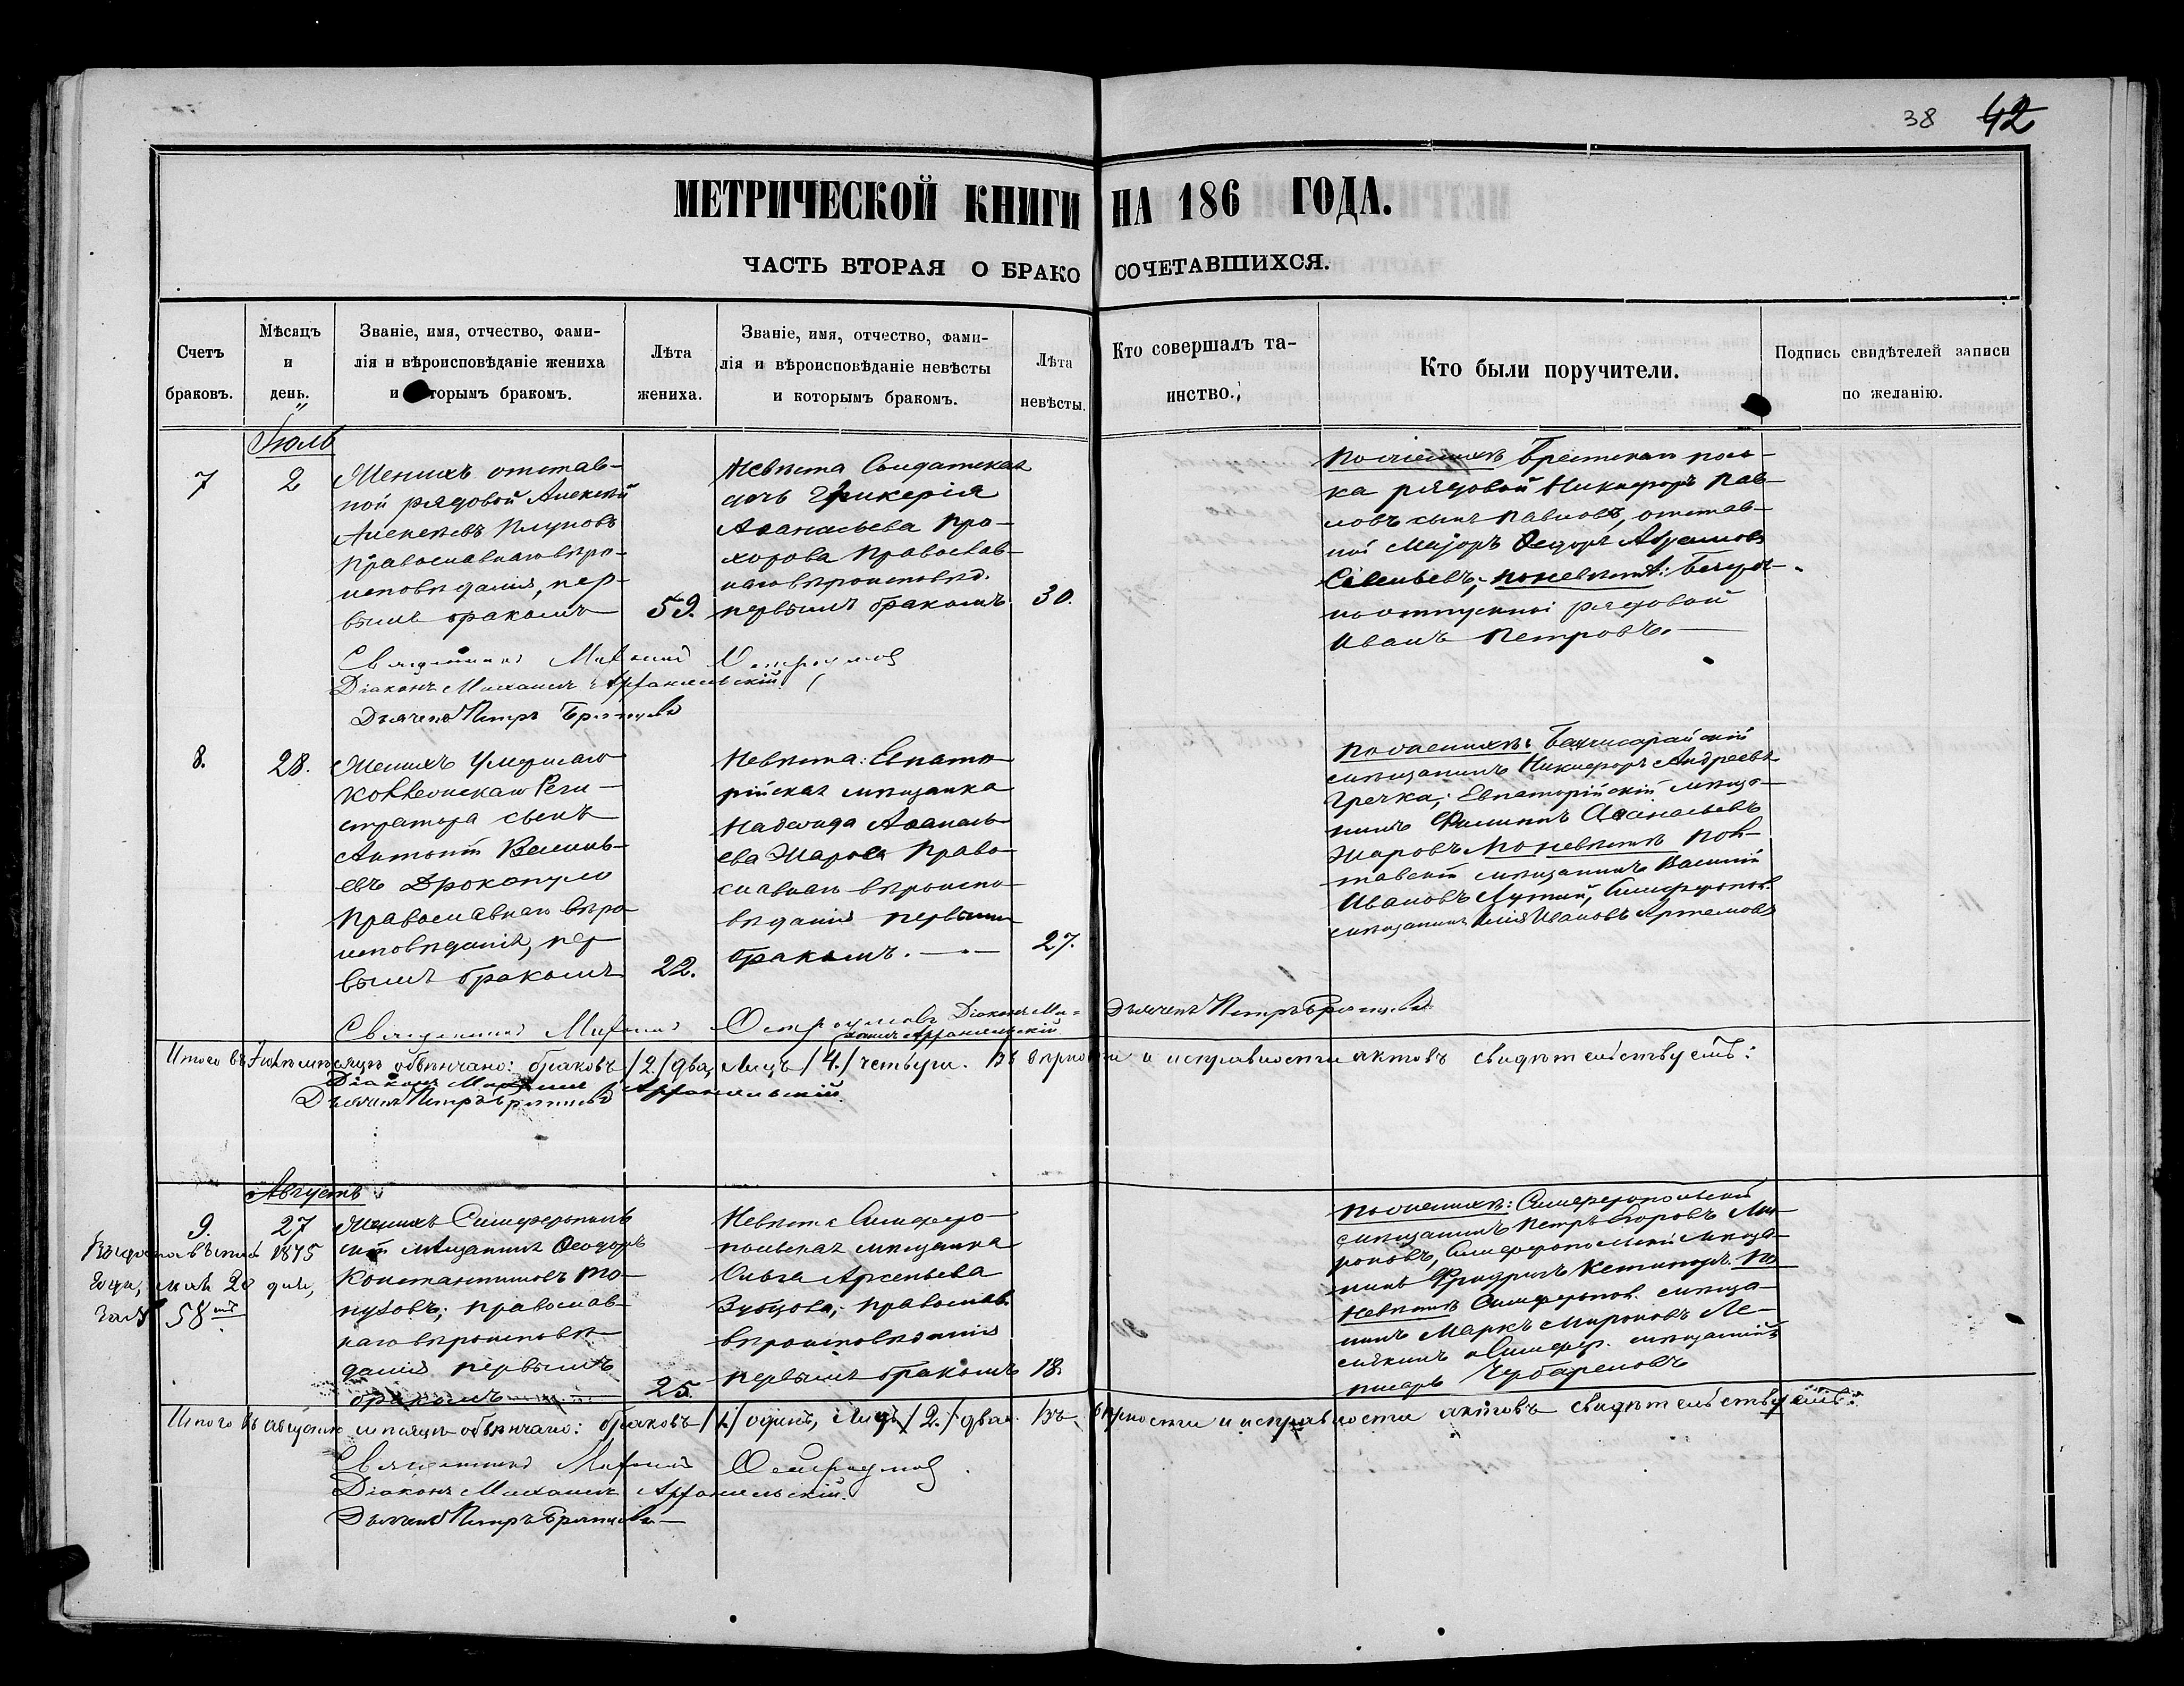 38 42
МЕТРИЧЕСКОЙ КНИГИ НА 186 ГОДА.
ЧАСТЬ ВТОРАЯ О БРАКОСОЧЕТАВШИХСЯ.
Счетъ
браковъ.
Мѣсяцъ
и
день.
Званіе, имя, отчество, фами-
лія и вѣроисповѣданіе жениха
и которымъ бракомъ.
Лѣта
жениха.
Званіе, имя, отчество, фами-
лія и вѣроисповѣданіе невѣсты
и которымъ бракомъ.
Лѣта
невѣсты.
Кто совершалъ та-
инство.
Кто были поручители.
Подпись свидѣтелей записи
по желанію.
Іюль
7
2
Женихъ отстав-
ной рядовой Алексѣй
Алексѣевъ
Православнаго вѣро-
исповѣданія, пер-
вымъ бракомъ
59.
Невѣста Солдатская
дочь Гликерія
Аѳанасьева Про-
хорова Православ-
наго вѣроисповѣд.
первымъ бракомъ
30.
По женихѣ Брестскаго пол-
ка рядовой Никифоръ Пав-
ловъ сынъ Павловъ, отстав-
ной Маіоръ Ѳедоръ Абрамовъ
по невѣстѣ: Безсроч-
но отпускной рядовой
Иванъ Петровъ.
Священникъ
Діаконъ Михаилъ Архангельскій
Дьячекъ Петръ
8.
28.
Женихъ умершаго
Коллежскаго Реги-
стратора сынъ
Антоній Василь-
евъ
Православнаго вѣро-
исповѣданія, пер-
вымъ бракомъ
22.
Невѣста: Евпато-
рійская мѣщанка
Надежда Аѳанась-
ева Жарова Право-
славнаго вѣроиспо-
вѣданія первымъ
бракомъ.
27.
По женихѣ: Бахчисарайскій
мѣщанинъ Никифоръ Андреевъ
Гречка; Евпаторійскій мѣща-
нинъ Филиппъ Аѳанасьевъ
Жаровъ По невѣстѣ Пол-
тавскій мѣщанинъ Василій
Ивановъ Симфероп.
мѣщанинъ Илія Ивановъ Артемовъ
Священникъ Діаконъ Ми-
хаилъ Архангельскій
Дьячекъ Петръ
Итого въ Іюлѣ мѣсяцѣ обвѣнчано: браковъ /2/ два, лицъ /4/ четыре. Въ вѣрности и исправности актовъ свидѣтельствуемъ:
Діаконъ Михаилъ Архангельскій
Дьячекъ Петръ
Августъ
9.
27
1875
года, 28 дня,
за № 58
Женихъ Симферополь-
скій мѣщанинъ Ѳеодоръ
Константиновъ
православ-
наго вѣроисповѣ-
данія первымъ
бракомъ
25.
Невѣста Симферо-
польская мѣщанка
Ольга Арсеньева
Зубцова, православ.
вѣроисповѣданія
первымъ бракомъ
18.
По женихѣ: Симферопольскій
мѣщанинъ Петръ Егоровъ Ми-
роновъ, Симферопольскій мѣща-
нинъ Фридрихъ По
невѣстѣ Симфероп. мѣща-
нинъ Маркъ Мироновъ
Симфер. мѣщанинъ
Итого въ августѣ мѣсяцѣ обвѣнчано: браковъ /1/ одинъ, лицъ /2/ два. Въ вѣрности и исправности актовъ свидѣтельствуемъ:
Священникъ
Діаконъ Михаилъ Архангельскій.
Дьячекъ Петръ